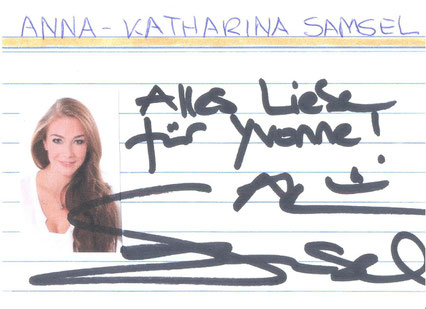 ANNA-KATHARINA SAMSEL
Alles Liebe
für Yvonne!
A.K.
Samsel